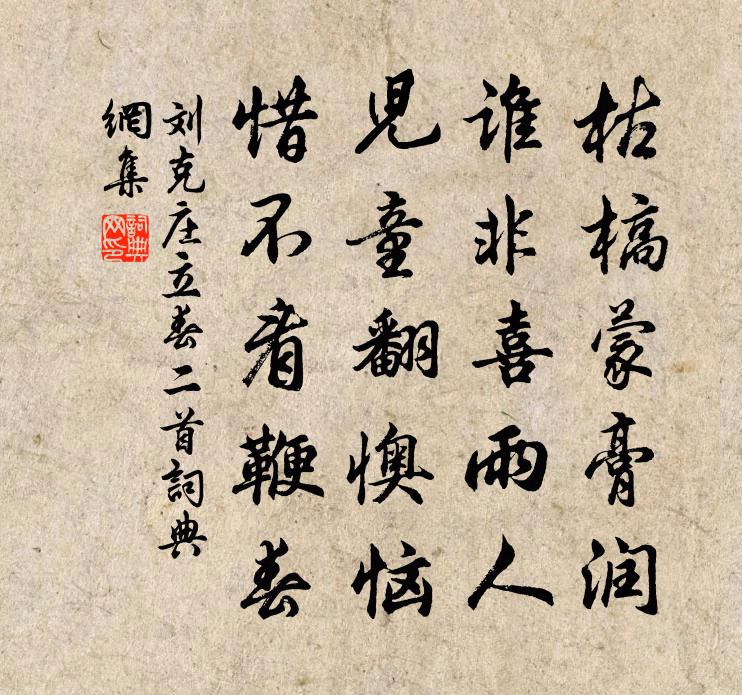 枯槁蒙膏润
谁非喜雨人
児童翻懊恼
惜不看鞭春
刘克庄立春二首词典
網集
詞典網印